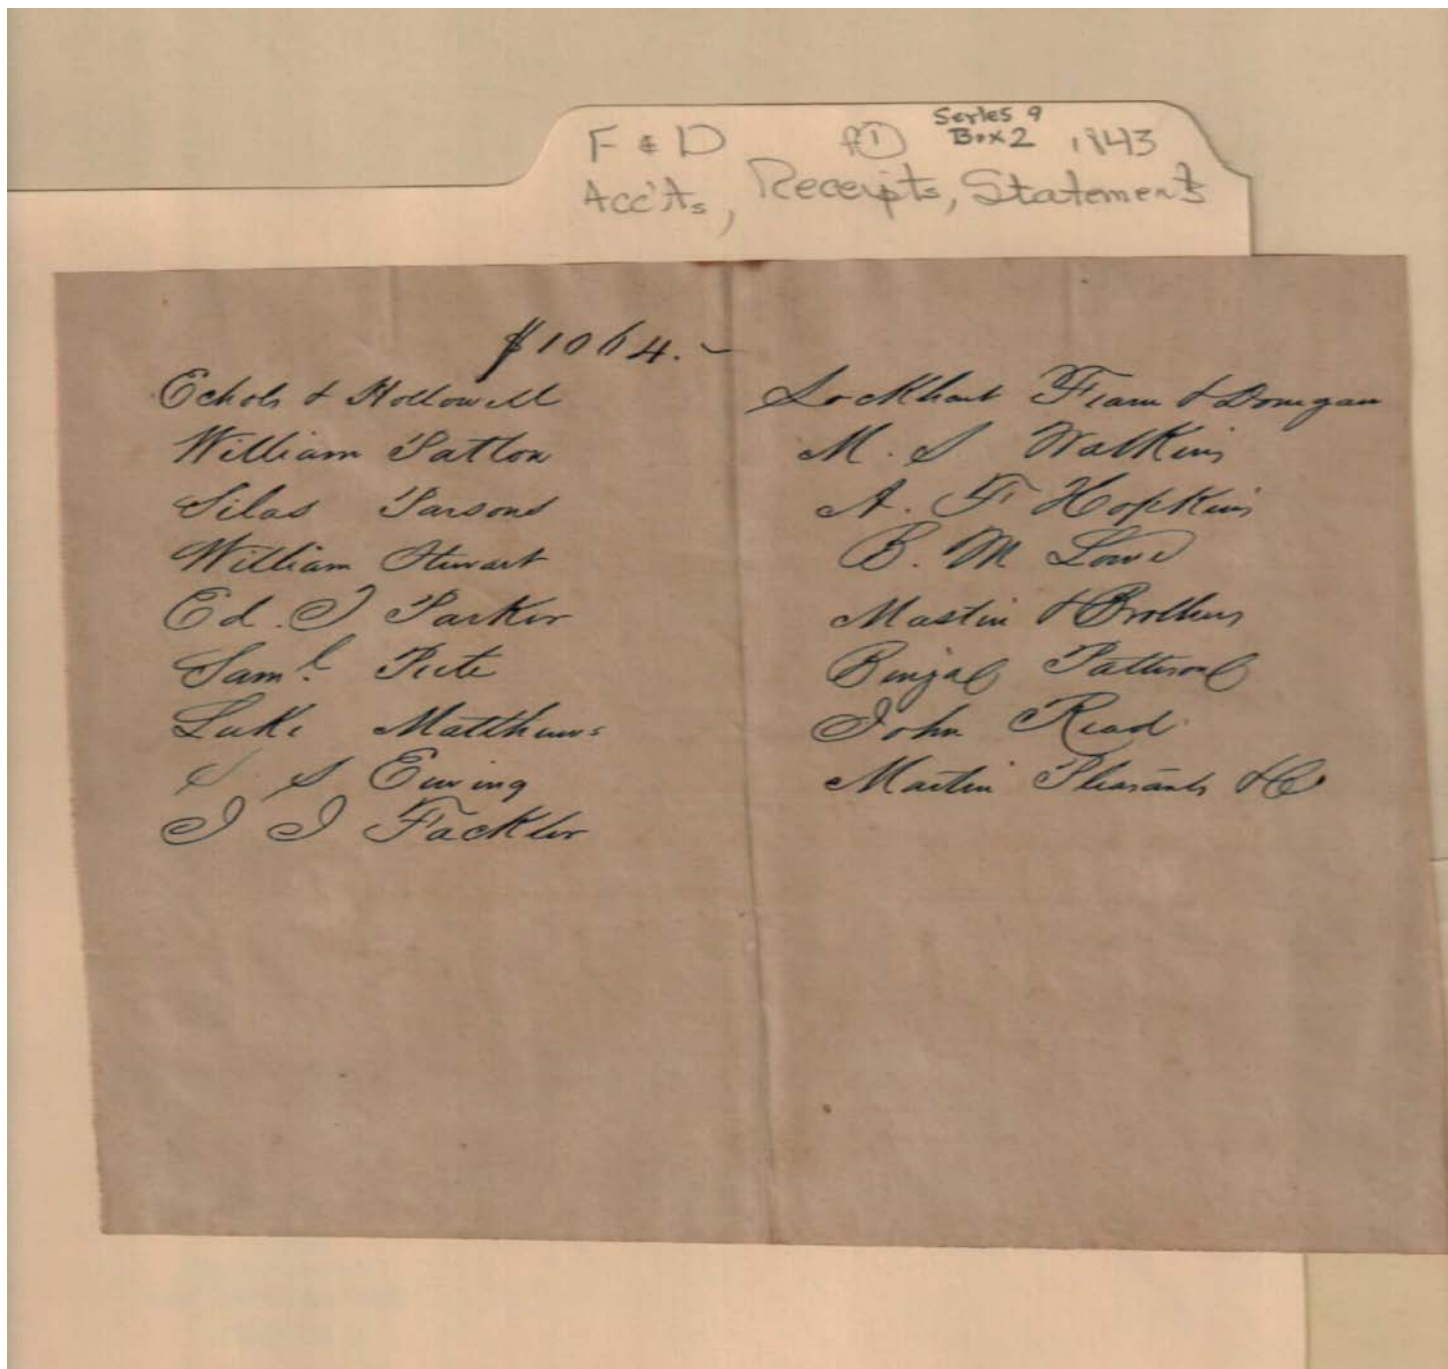 F & D f① Series 9 Box 2 1843
Acc'ts, Receipts, Statements
$1064.–
Echols & Hollowell
William Patton
Silas Parsons
William Stewart
Ed. J Parker
Saml. Peete
Luke Matthews
S S Ewing
J J Fackler
Lockhart Fearn & Donegan
M. S Watkins
A. F Hopkins
B. M Lowe
Mastin & Brothers
Patteson
John Read
Martin Pleasants & Co